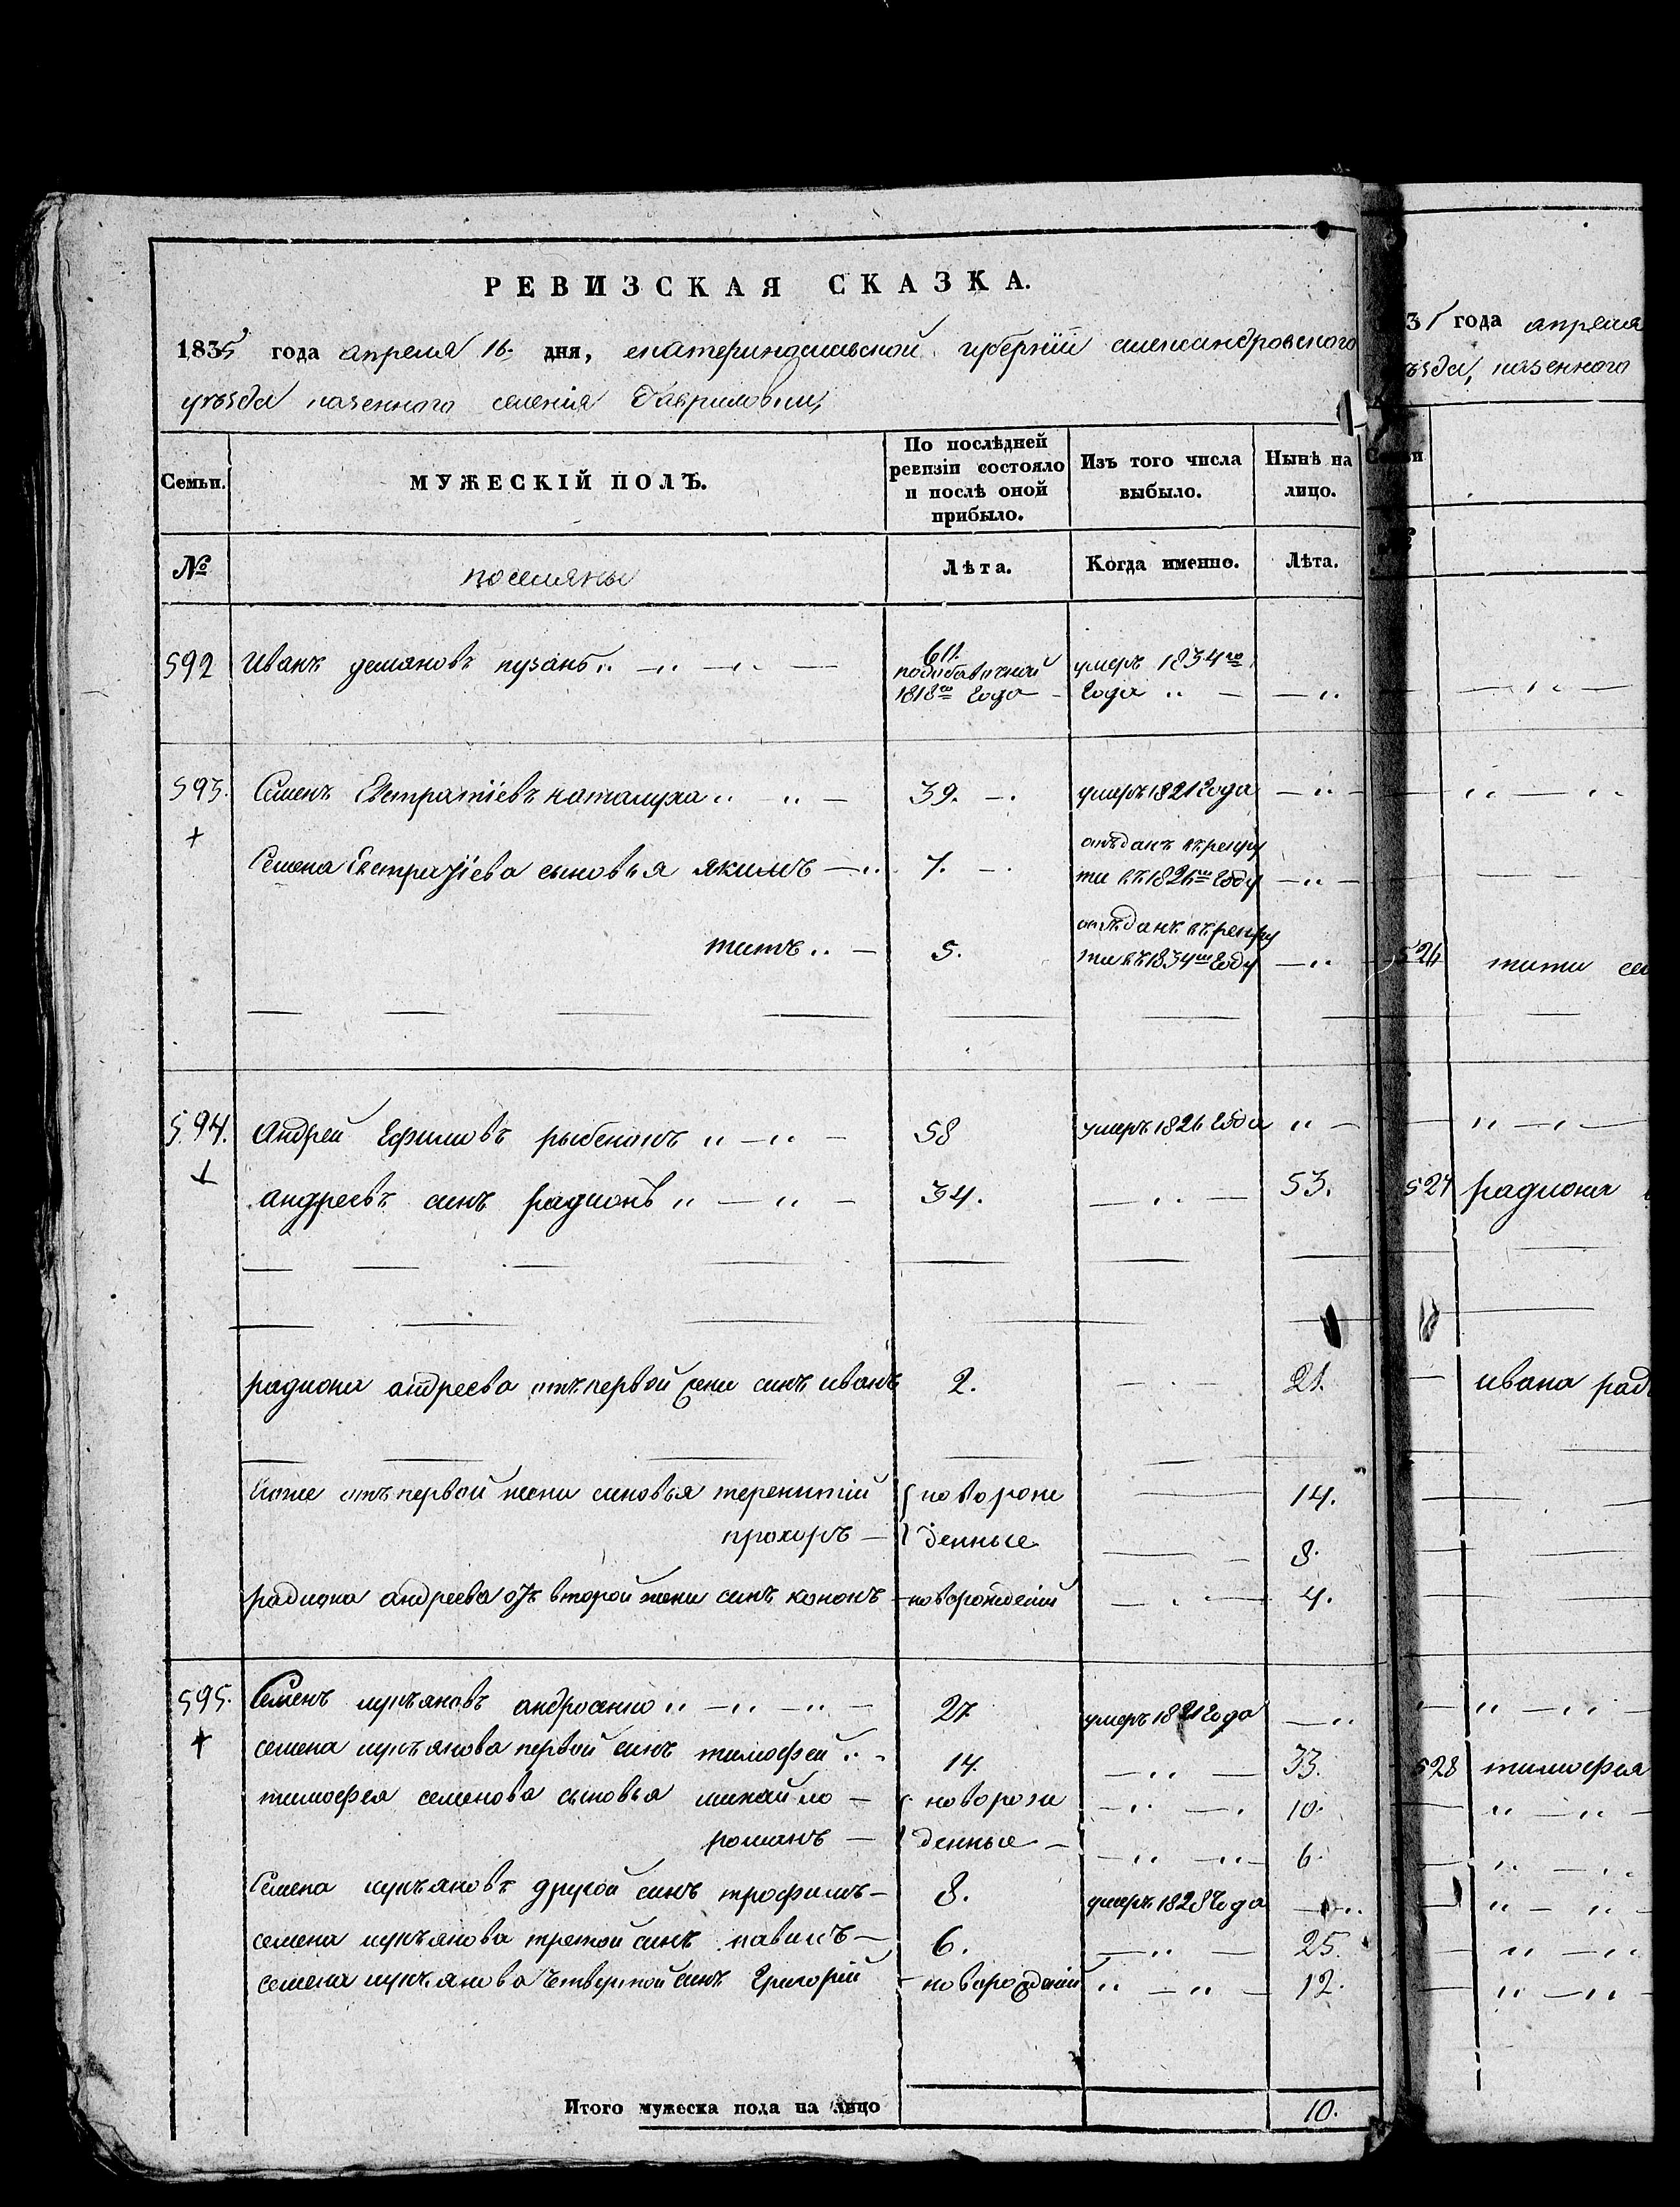 РЕВИЗСКАЯ СКАЗКА.
1835 года апреля 16. дня, екатеринославской губерніи александровского
уѣзда казенного селенія Гавриловки,
Семьи. МУЖЕСКІЙ ПОЛЪ. По послѣдней ревизіи состояло и послѣ оной прибыло. Изъ того числа выбыло. Нынѣ на лицо.
№ поселяны Лѣта. Когда именно. Лѣта.
592 Иванъ демяновъ пузанъ 61. 1818го года умеръ 1834го года
593. Семенъ Евстратіевъ каталуха 39. умеръ 1821 года
Семена Евстратіева сыновья якимъ 7. отъданъ въ рекру ти въ 1826м году
титъ 5. отъданъ въ рекру ти въ 1834м году
594. Андрей Ефимовъ рыбенокъ 58 умеръ 1826 года
андреевъ синъ радионъ 34. 53.
радиона андреева отъ первой жени синъ иванъ 2. 21.
Егоже отъ первой жени синовья терентий новорож 14.
прохоръ денные 8.
радиона андреева отъ второй жени синъ кононъ новорожденій 4.
595. Семенъ лукъяновъ андросенко 27 умеръ 1821 года
семена лукъянова первой синъ тимофей 14. 33.
тимофея семенова сыновья михайло новорож 10.
романъ денные 6.
Семена лукъяновъ другой синъ трофимъ 8. умеръ 1828 года
семена лукъянова третой синъ павилъ 6. 25.
семена лукъянова четвертой синъ Григорій новорожденій 12.
Итого мужеска пола на лицо 10.
года апреля
казенного
526 тита
527 радиона
ивана рад
528 тимофея